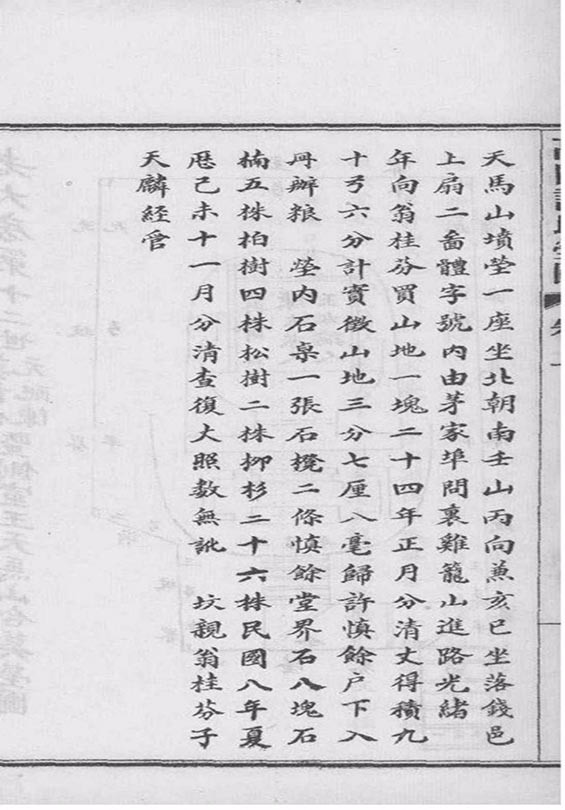 天馬山墳塋一座坐北朝南壬山丙向兼亥巳坐落錢邑
上扇二畨體字號內由茅家埠問裏雞籠山進路光緒
年向翁桂芬買山地一塊二十四年正月分清丈得積九
十弓六分計實徵山地三分七厘八毫歸許慎餘户下入
冊辦粮 塋內石桌一張石櫈二條慎餘堂界石八塊石
楠五株柏樹四株松樹二株柳杉二十六株民國八年夏
厯己未十一月分清查復大照数無訛 坟親翁桂芬子
天麟經管